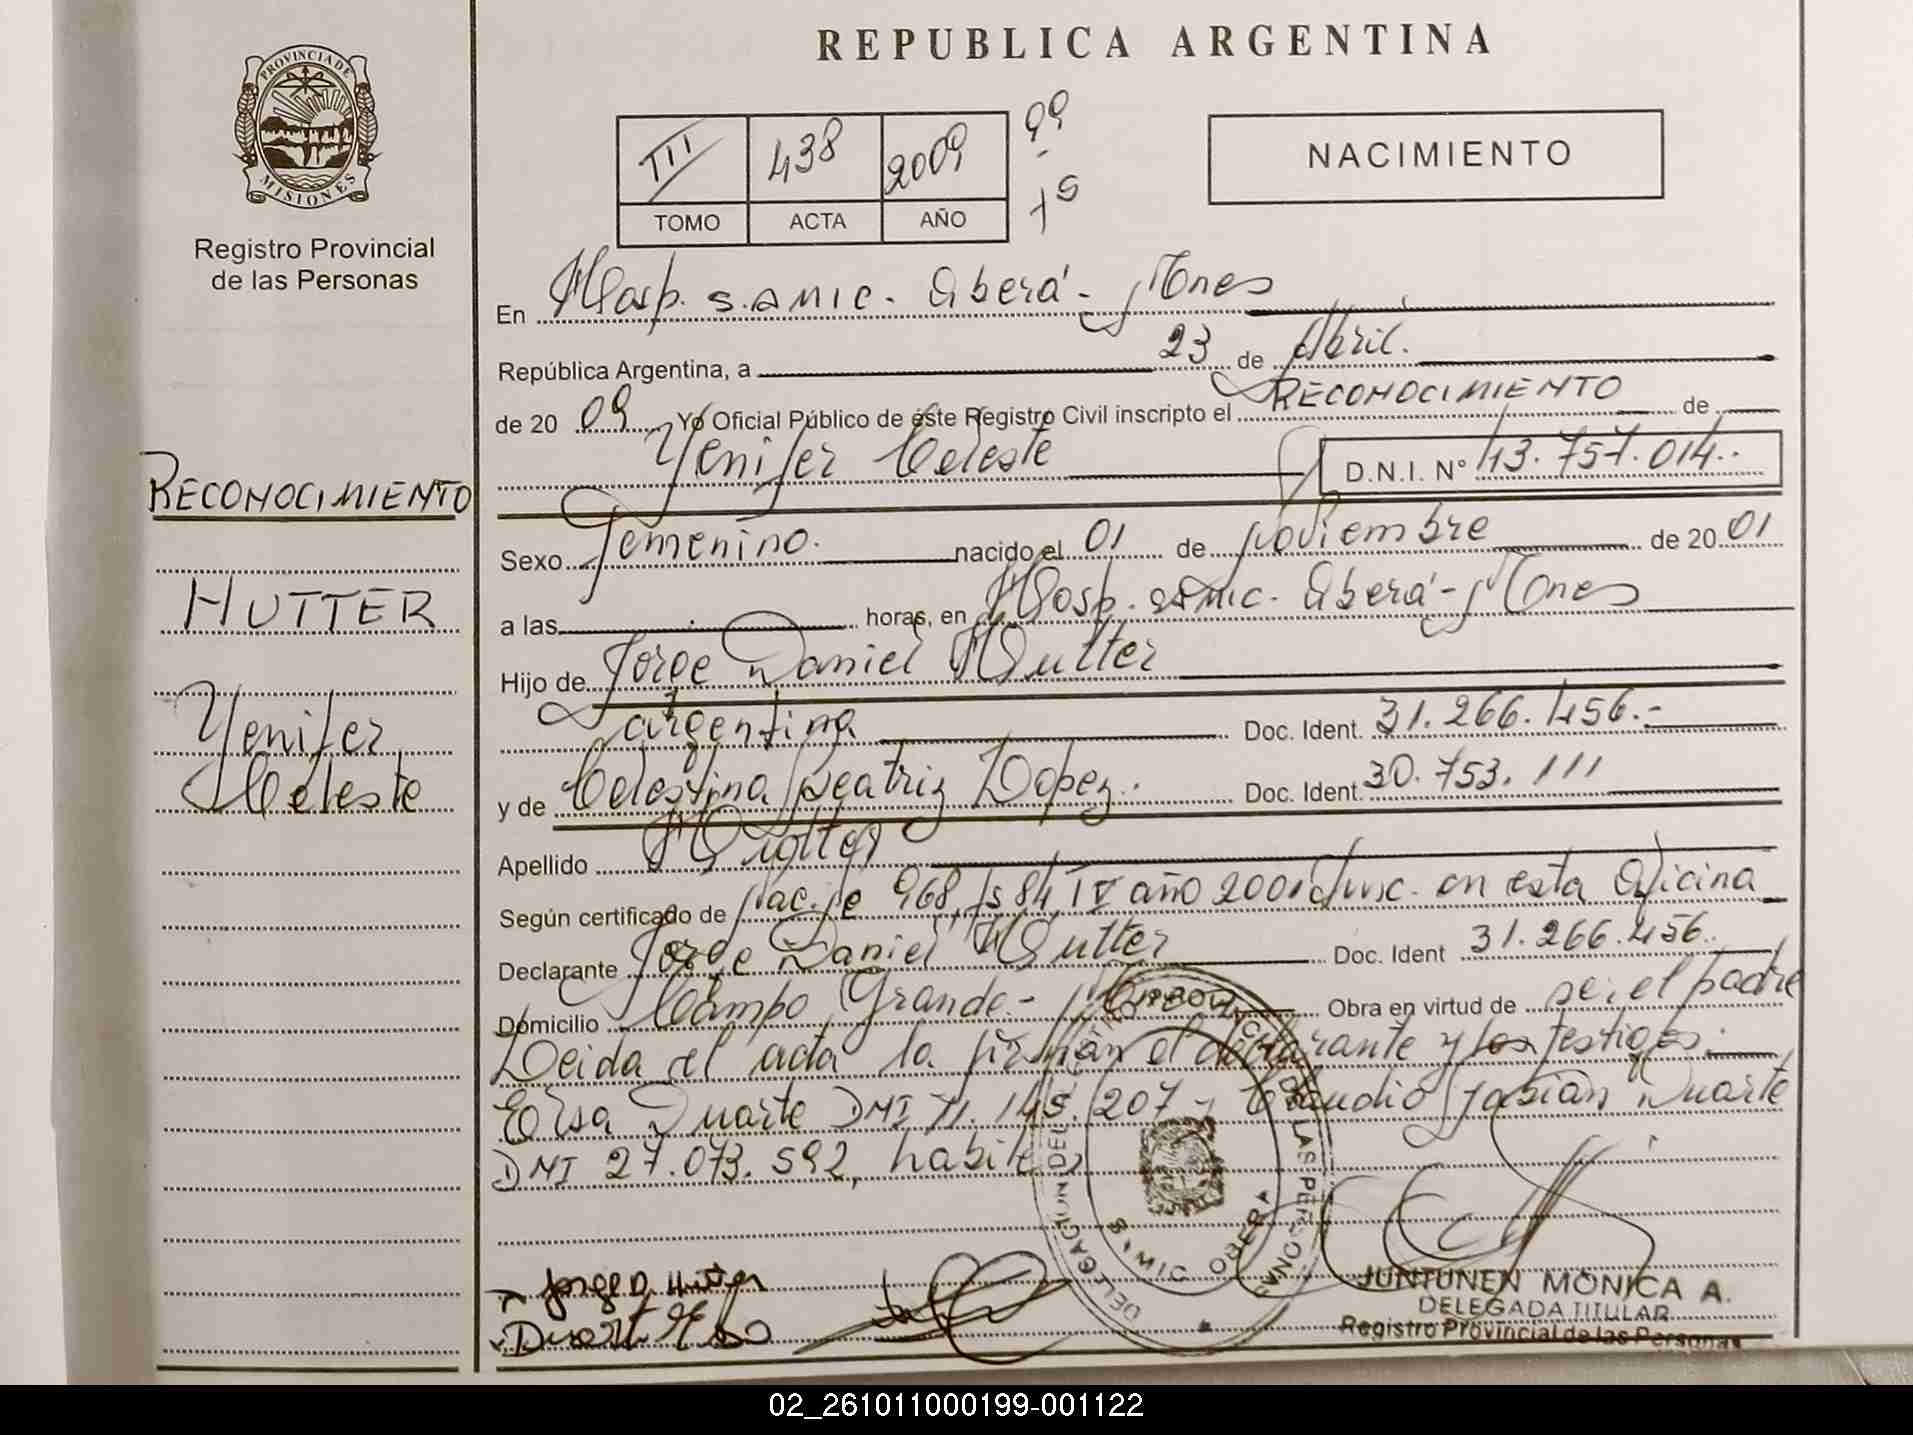 REPUBLICA ARGENTINA
PROVINCIA DE
MISIONES
Registro Provincial
de las Personas
III 438 2009
TOMO ACTA AÑO
99
NACIMIENTO
En Hosp. S.AMIC. Oberá - Mnes
República Argentina, a 23 de Abril.
de 20 09 Yo Oficial Público de este Registro Civil inscripto el RECONOCIMIENTO de
Yenifer Celeste D.N.I. Nº 43.757.014..
Sexo Femenino. nacido el 01 de noviembre de 20 01
a las horas, en Hosp. SAMIC. Oberá - Mones
Hijo de Jorge Daniel Hutter
argentina Doc. Ident. 31.266.456.-
y de Celestina Beatriz Lopez.. Doc. Ident. 30.753.111
Apellido Hutter
Según certificado de Nac. 968 fs 84 T IV año 2001 Insc. en esta Oficina
Declarante Jorge Daniel Hutter Doc. Ident 31.266.456.
Domicilio Campo Grande - Obra en virtud de ser el padre
Leida el acta la firman el declarante y los testigos:
Elsa Duarte DNI 11.145.207 - Claudio Fabian Duarte
DNI 27.073.592, habiles
RECONOCIMIENTO
HUTTER
Yenifer
Celeste
DELEGACION DEL
DE LAS PERSONAS
SAMIC OBERA
Jorge D. Hutter
Duarte Elsa
JUNTUNEN MONICA A.
DELEGADA TITULAR
Registro Provincial de las Personas
02_261011000199-001122